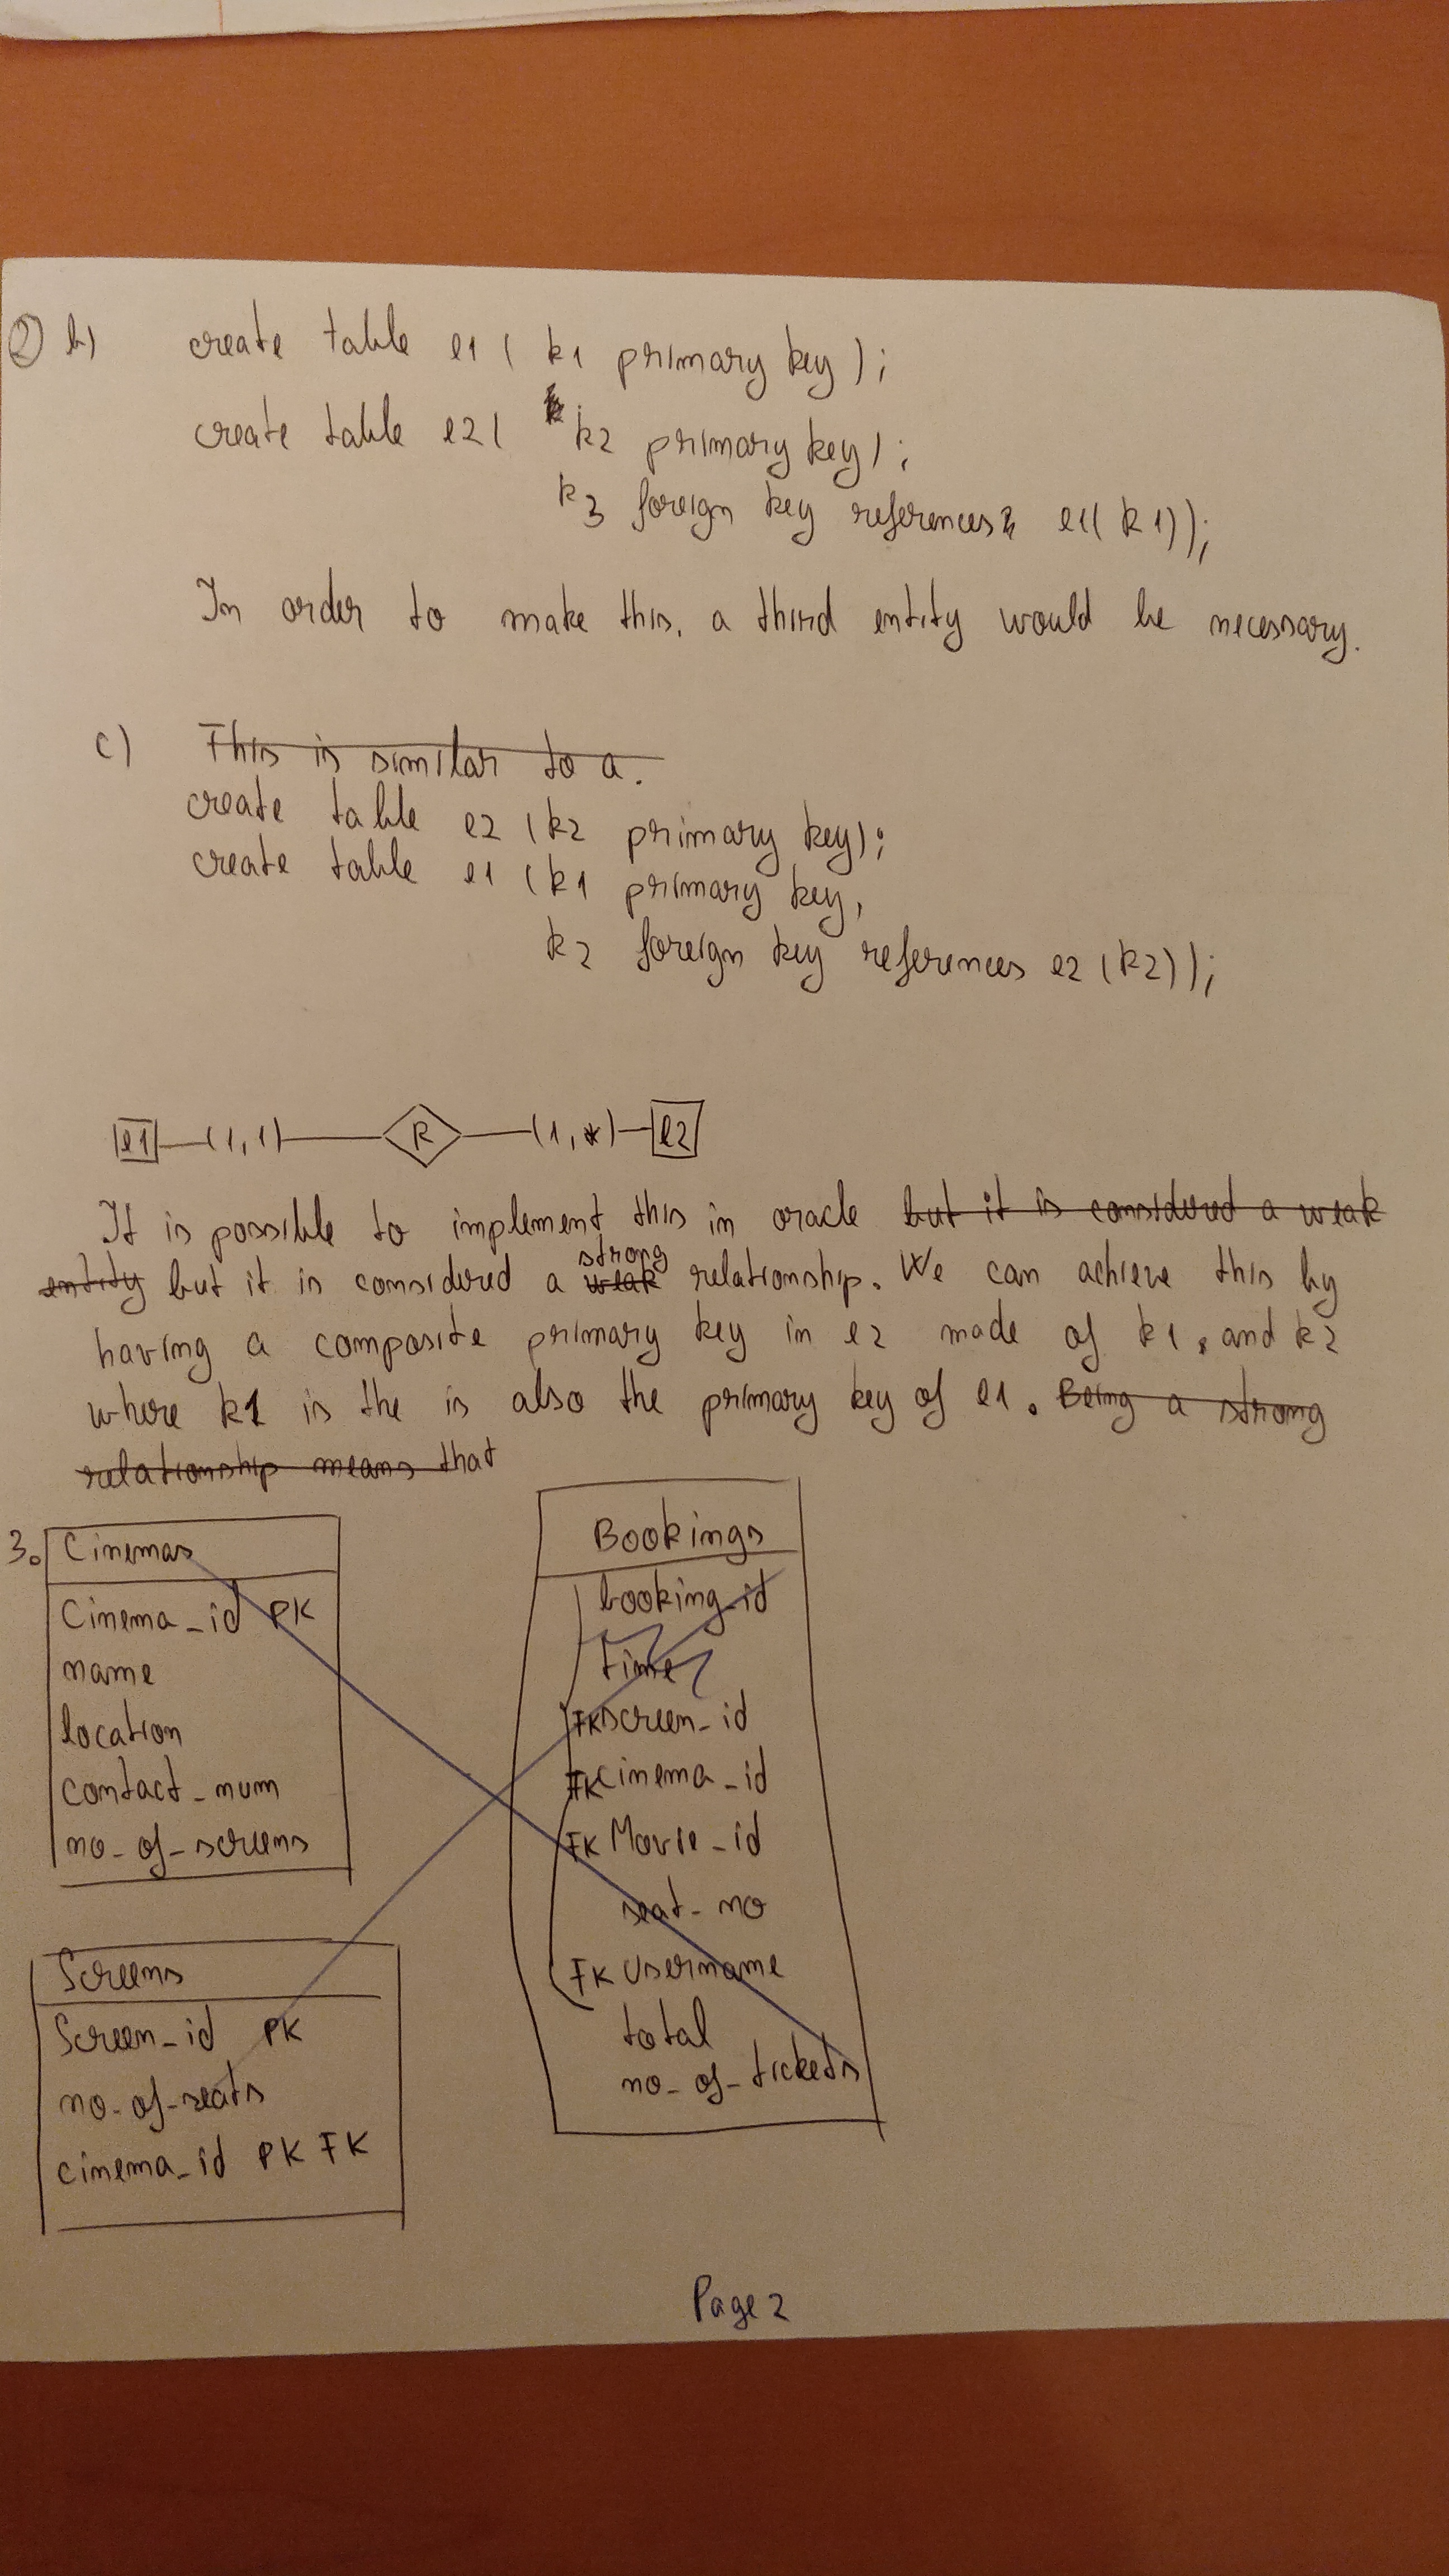 2) b) create table e1 ( k1 primary key );
create table e2 ( k2 primary key );
k3 foreign key references e1( k1));
In order to make this, a third entity would be necessary.
c) This is similar to a.
create table e2 (k2 primary key);
create table e1 (k1 primary key,
k2 foreign key references e2 (k2));
e1 (1,1) R (1,*) e2
It is possible to implement this in oracle but it is considered a weak
strong
entity but it is considered a weak relationship. We can achieve this by
having a composite primary key in e2 made of k1, and k2
where k1 is the is also the primary key of e1. Being a strong
relationship means that
3. Cinemas
Cinema_id PK
name
location
contact_num
no_of_screens
Bookings
booking_id
time
FK screen_id
FK cinema_id
FK Movie_id
seat_no
FK Username
total
no_of_tickets
Screens
Screen_id PK
no_of_seats
cinema_id PK FK
Page 2